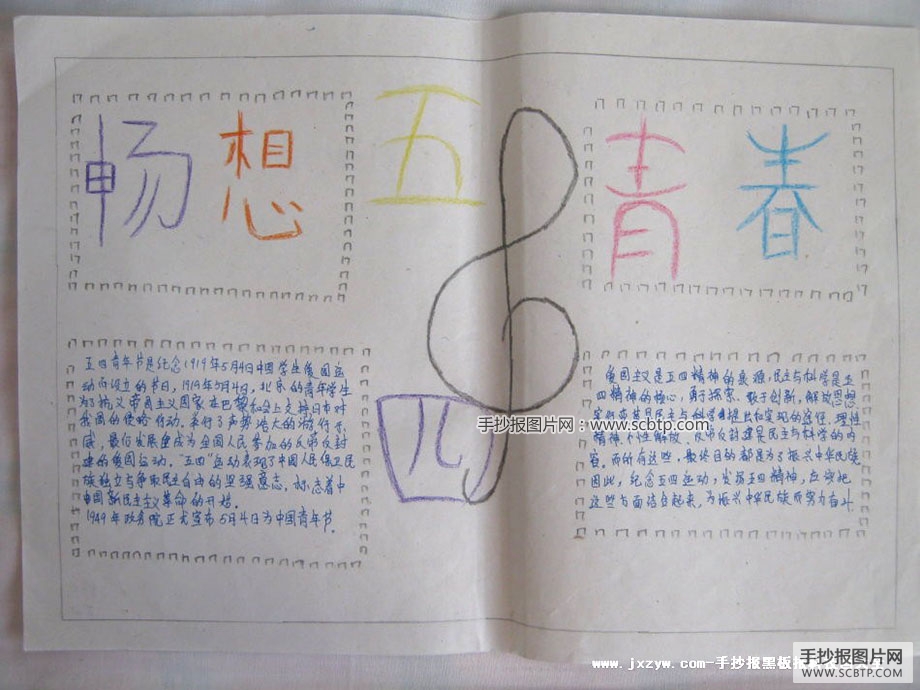 畅想
五
四
青春
五四青年节是纪念1919年5月4日中国学生爱国运
动而设立的节日,1919年5月4日,北京的青年学生
为了抗议帝国主义国家在巴黎和会上支持日本对
我国的侵略行动,举行了声势浩大的游行示
威,最后发展壮成为全国人民参加的反帝反封
建的爱国运动。"五四"运动表现了中国人民保卫民
族独立与争取民主自由的坚强意志,标志着中
中国新民主主义革命的开始。
1949年政务院正式宣布5月4日为中国青年节。
爱国主义是五四精神的源泉,民主与科学是五
四精神的核心,勇于探索、敢于创新、解放思想
实行变革是民主与科学提出和实现的途径,理性
精神、个性解放、反帝反封建是民主与科学的内
容。而所有这些,最终目的都是为了振兴中华民族
因此,纪念五四运动,发扬五四精神,应该把
这些方面结合起来,为振兴中华民族而努力奋斗
手抄报图片网:
www.scbtp.com
www.jxzyw.com-手抄报黑板报
手抄报图片网
WWW.SCBTP.COM